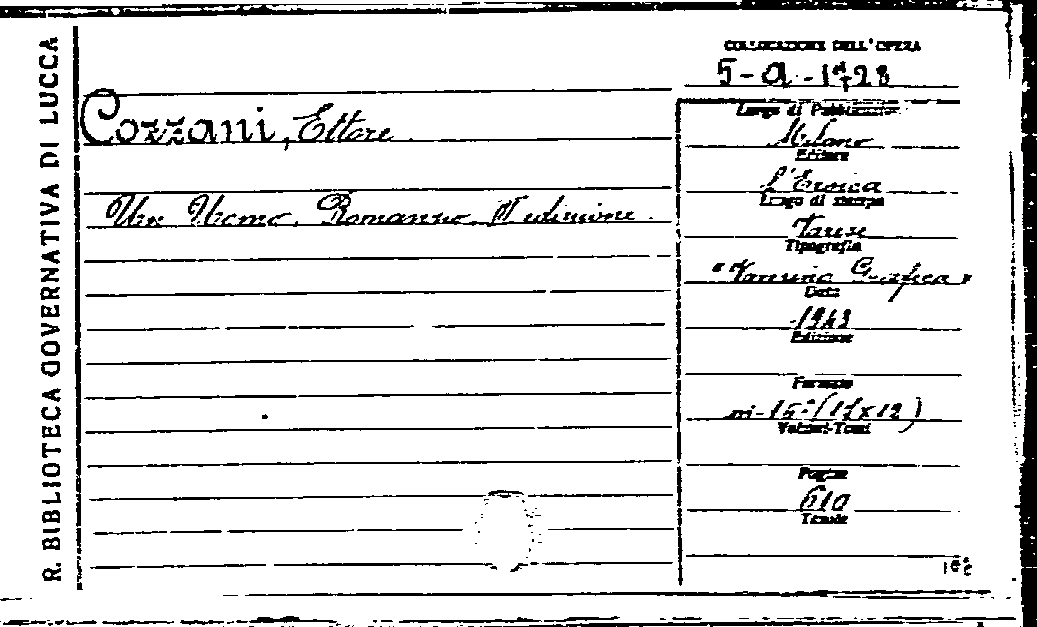 R. BIBLIOTECA GOVERNATIVA DI LUCCA
COLLOCAZIONE DELL'OPERA
Cozzani, Ettore
Un Uomo. Romanzo. edizione.
Luogo di Pubblicazione
Milano
Editore
L'Eroica
Luogo di stampa
Varese
Tipografia
Grafica"
Data
1943
Edizione
Formato
in-16°
Volumi-Tomi
Pagine
610
Tavole